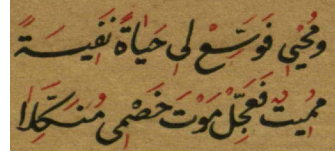 ومُحْيِي فَوَسِّعْ لِى حَيَاةً نَفِيسَةً
مُمِيتٌ فَعَجِّلْ مَوْتَ خَصْمِى مُنَكَّلَا